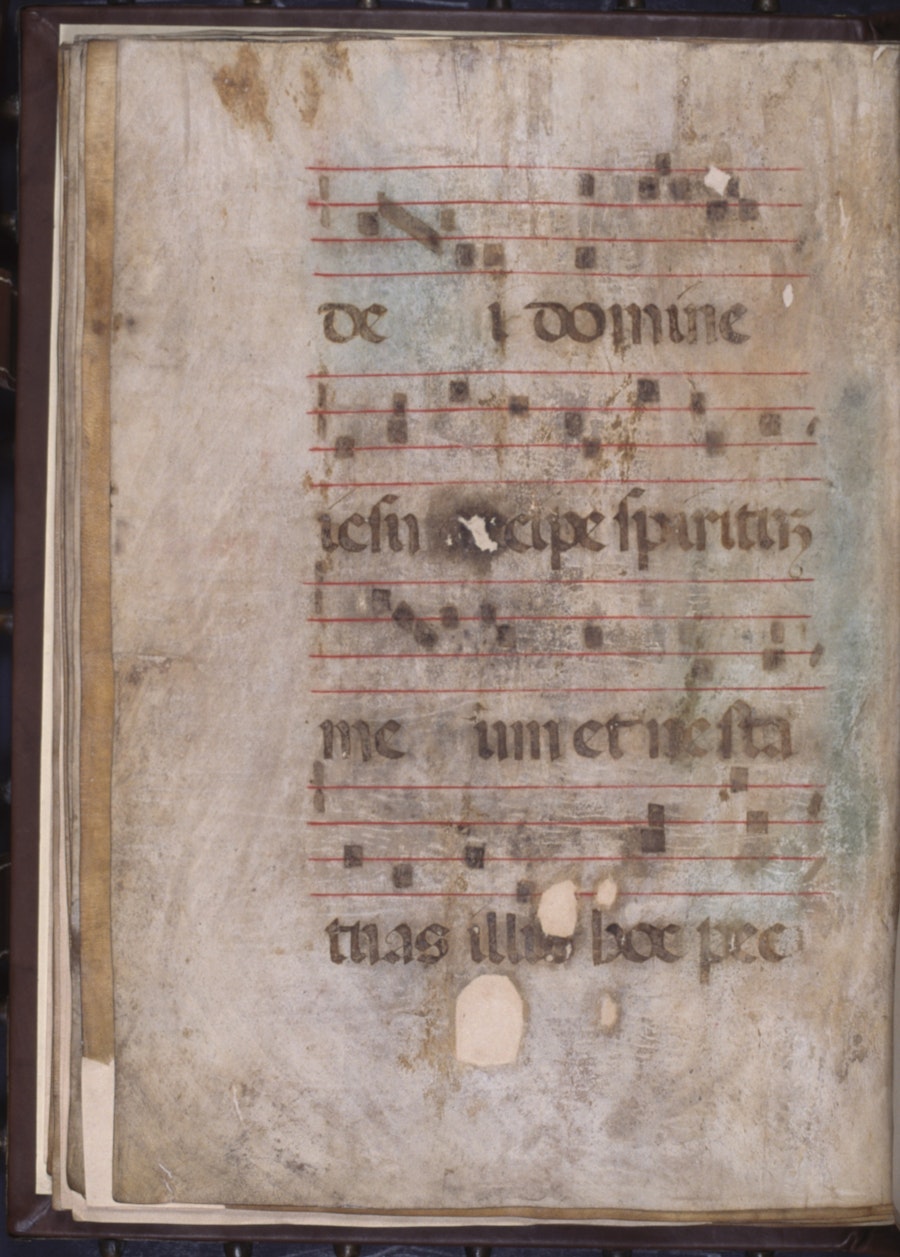 de i domine
iesu accipe spirituz
me um et ne sta
tuas illis hoc pec